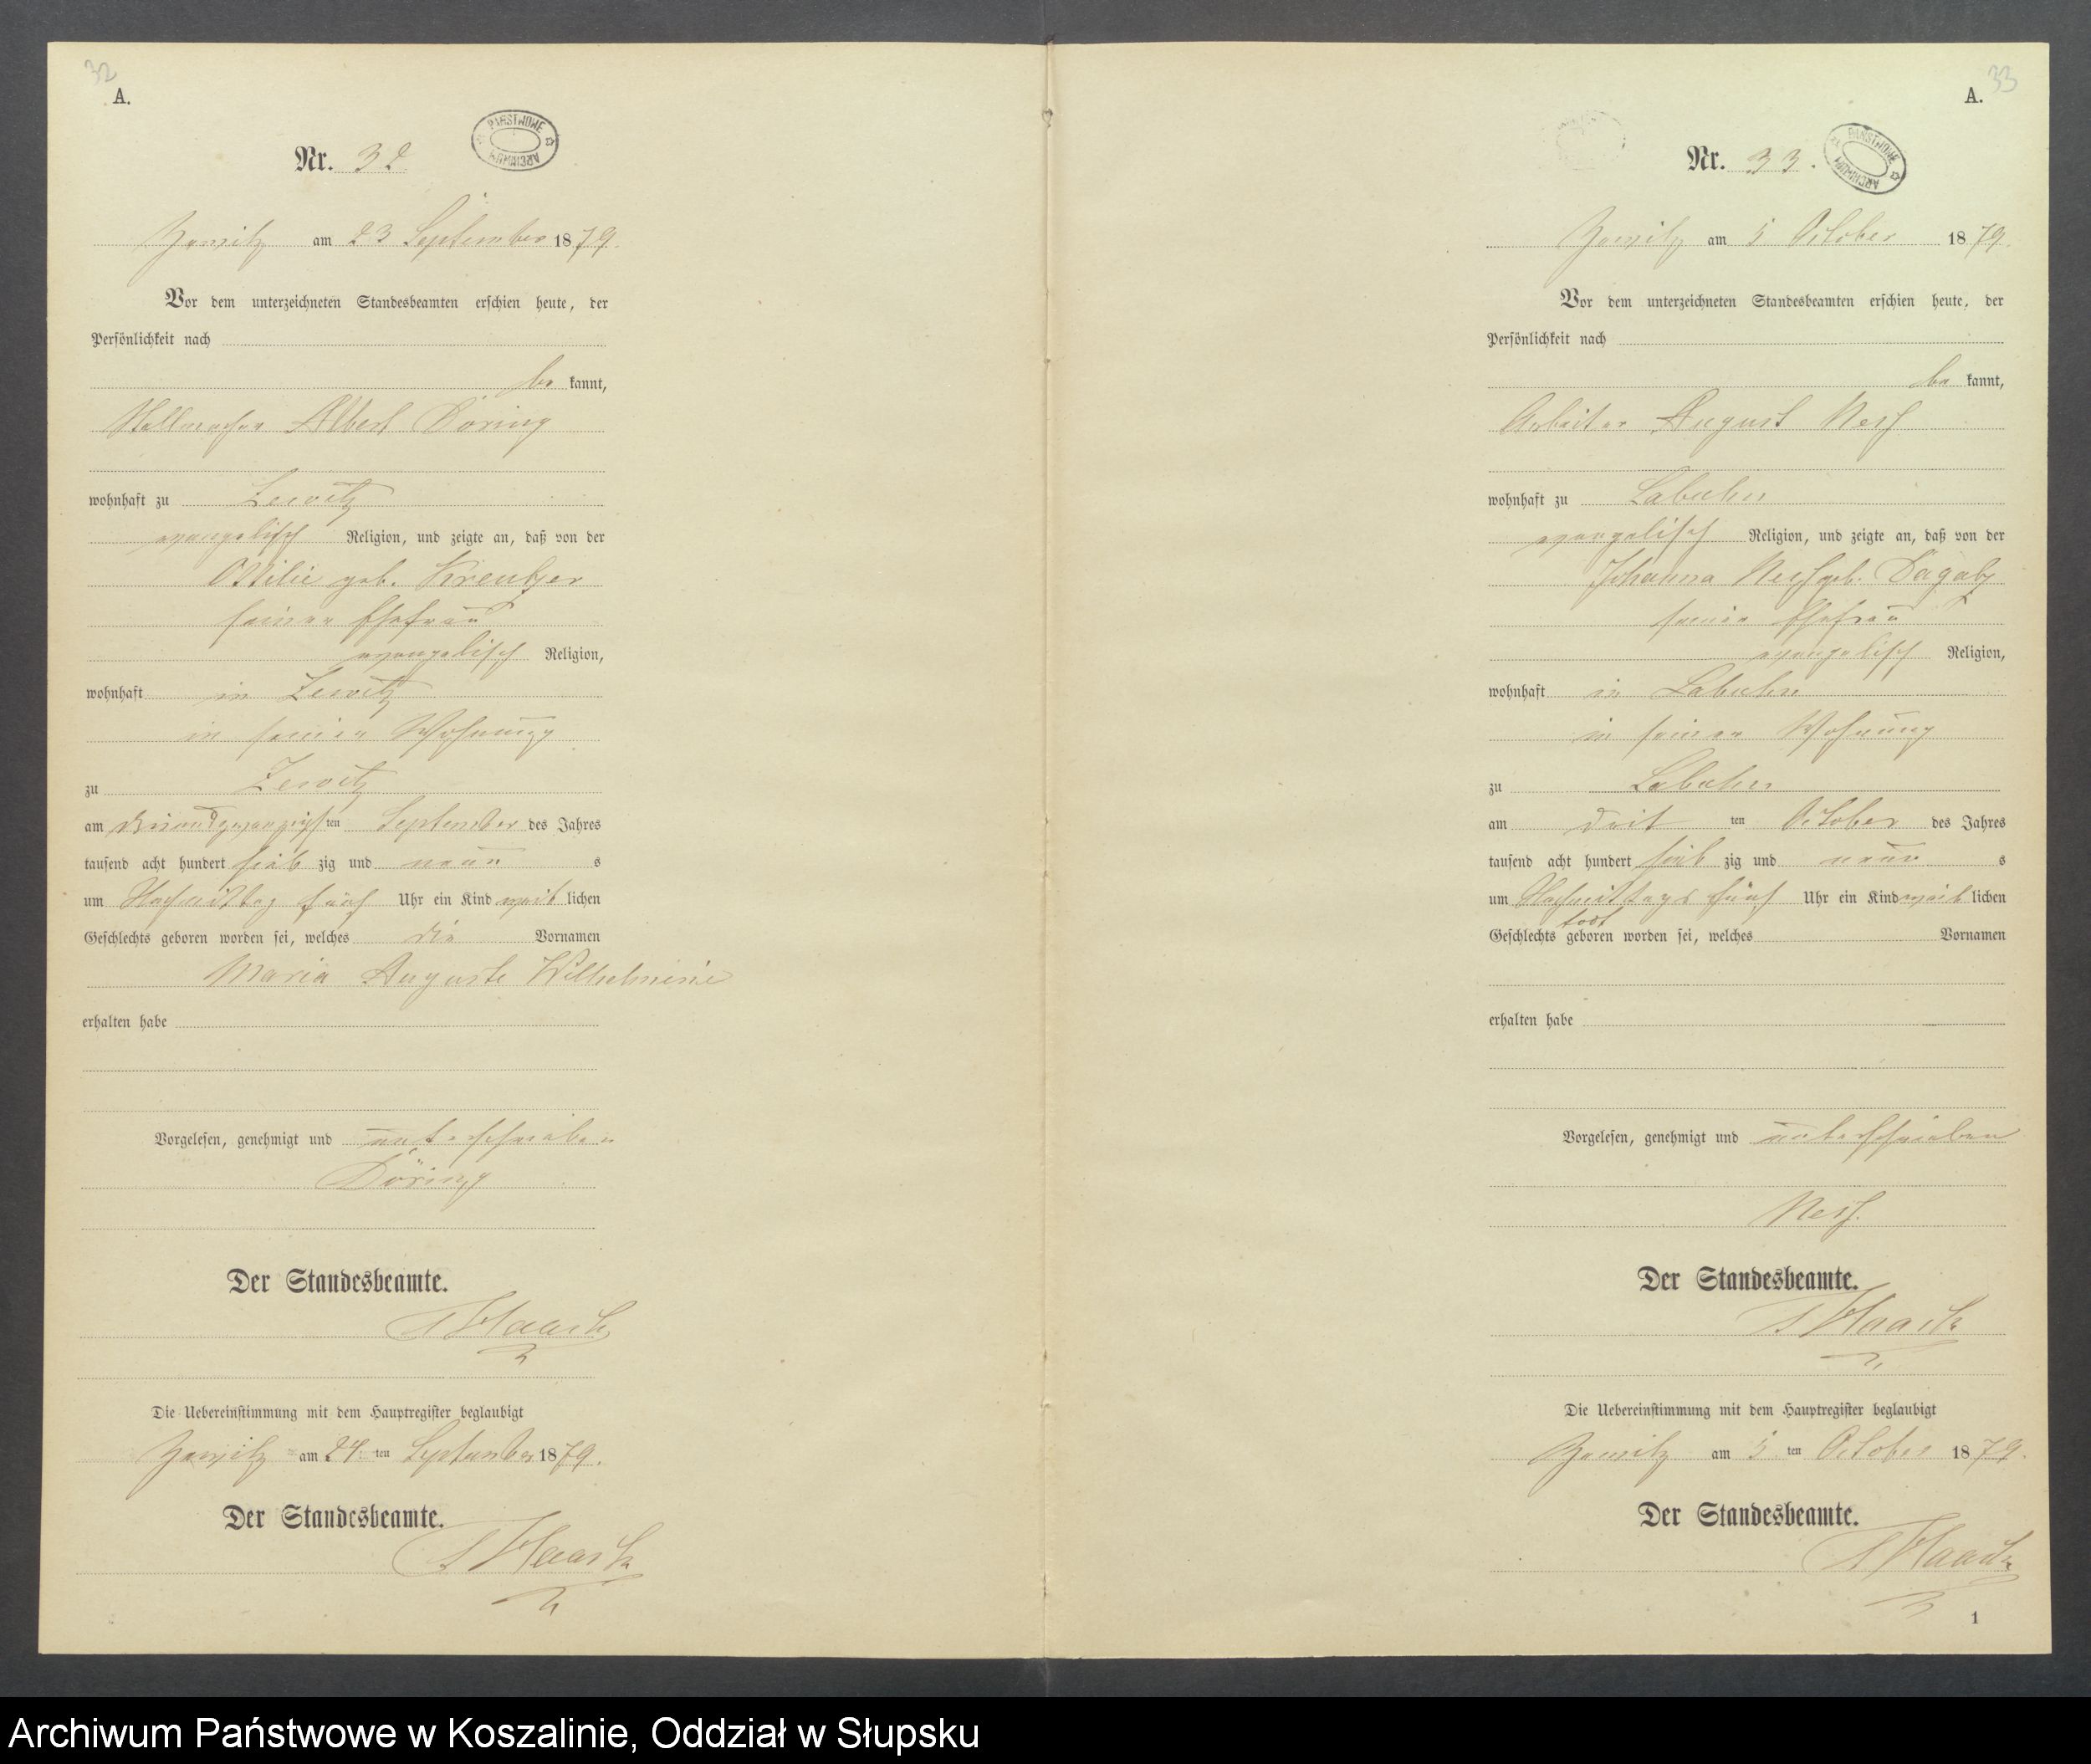 32
A.
PAŃSTWOWE ARCHIWUM
Nr. 32
am 23 September 1879.
Vor dem unterzeichneten Standesbeamten erschien heute, der
Persönlichkeit nach
be kannt,
Albert Döring
wohnhaft zu Zewitz
evangelisch Religion, und zeigte an, daß von der
Ottilie geb. Kreutzer
seiner Ehefrau
evangelisch Religion,
wohnhaft in Zewitz
in seiner Wohnung
zu Zewitz
am dreiundzwanzigsten September des Jahres
tausend acht hundert sieb zig und neun s
um Nachmittag fünf Uhr ein Kind weib lichen
Geschlechts geboren worden sei, welches die Vornamen
Maria Auguste Wilhelmine
erhalten habe
Vorgelesen, genehmigt und unterschrieben
Döring
Der Standesbeamte.
Haack
Die Uebereinstimmung mit dem Hauptregister beglaubigt
am 24 ten September 1879.
Der Standesbeamte.
Haack
33
A.
PAŃSTWOWE ARCHIWUM
Nr. 33.
am 5 October 1879.
Vor dem unterzeichneten Standesbeamten erschien heute, der
Persönlichkeit nach
be kannt,
Arbeiter August
wohnhaft zu Labuhn
evangelisch Religion, und zeigte an, daß von der
Johanna geb.
seiner Ehefrau
evangelisch Religion,
wohnhaft in Labuhn
in seiner Wohnung
zu Labuhn
am drit ten October des Jahres
tausend acht hundert sieb zig und neun s
um Nachmittags fünf Uhr ein Kind weib lichen
todt
Geschlechts geboren worden sei, welches Vornamen
erhalten habe
Vorgelesen, genehmigt und unterschrieben
Der Standesbeamte.
Haack
Die Uebereinstimmung mit dem Hauptregister beglaubigt
am 5 ten October 1879.
Der Standesbeamte.
Haack
1
Archiwum Państwowe w Koszalinie, Oddział w Słupsku